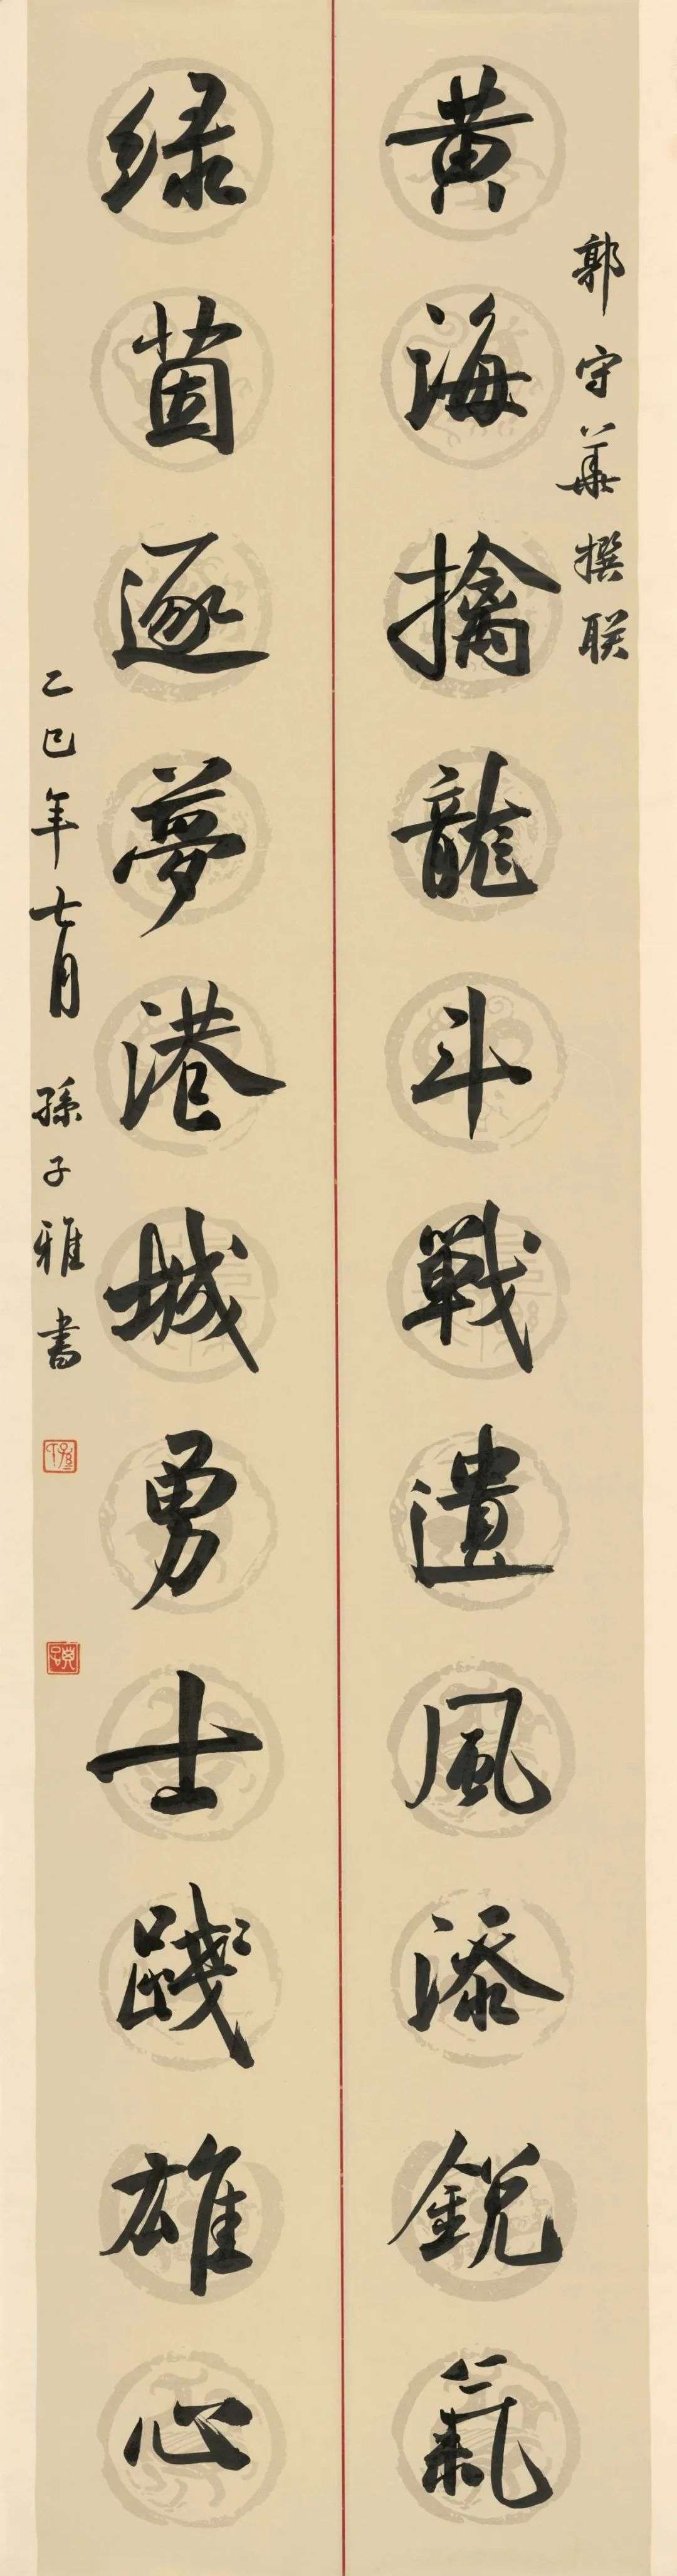 郭守華撰联
黄海擒龍斗戰遺風添銳氣
绿茵逐夢港城勇士踐雄心
乙巳年七月孫子雅書